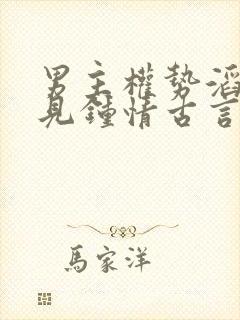 男主權勢滔
見鍾情古言
馬家洋